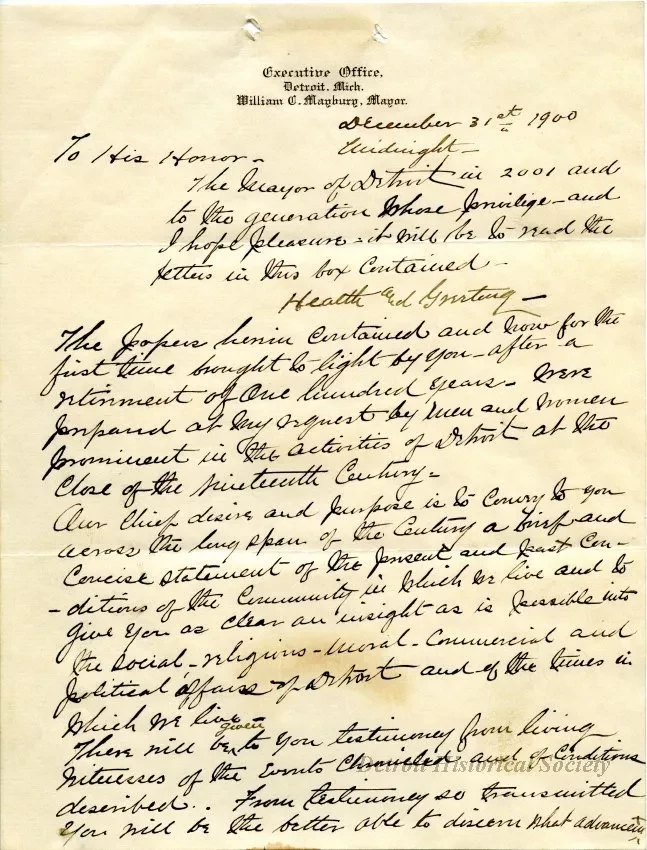 Executive Office,
Detroit, Mich.
William C. Maybury, Mayor.
December 31st 1900
Midnight -
To His Honor -
The Mayor of Detroit in 2001 and
to the generation whose privilege - and
I hope pleasure - it will be to read the
letters in this box contained -
Health and Greeting -
The papers herein contained and now for the
first time brought to light by you - after - a
retirement of one hundred years - were
prepared at my request by men and women
prominent in the activities of Detroit at the
close of the Nineteenth Century -
Our chief desire and purpose is to convey to you
across the long span of the Century a brief and
concise statement of the present and past con-
-ditions of the Community in which we live and to
give you as clear an insight as is possible into
the social - religious - moral - commercial and
political affairs of Detroit and of the times in
which we live
There will be given to you testimony from living
witnesses of the events chronicled and of conditions
described.. From testimony so transmitted
you will be the better able to discern what advancem
Detroit Historical Society